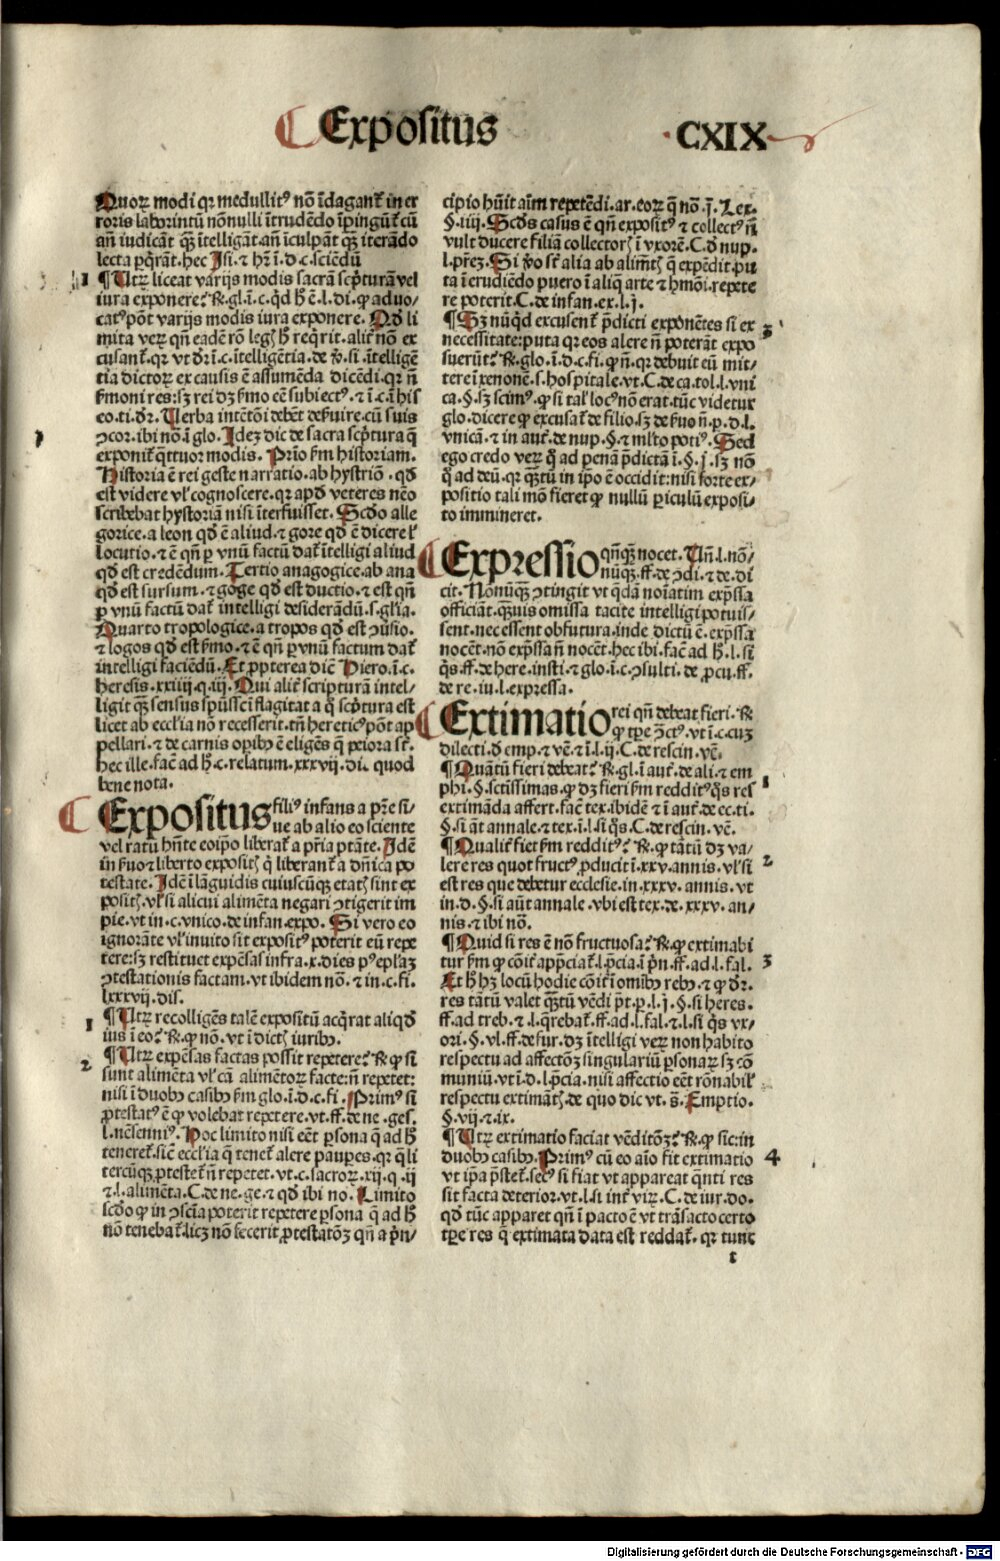 Expositus
CXIX
Quoꝝ modi qꝛ medullitꝰ nõ ĩdaganť in er
roris laborintũ nõnulli ĩtrudẽdo ĩpingũť cũ
añ iudicãt qꝫ̃ ĩtelligãt. añ ĩculpãt qꝫ̃ iterãdo
lecta pq̃rãt. hec Isi. ⁊ hr̃ ĩ. d. c. sciẽdũ
1 ¶ Utꝝ liceat varijs modis sacrã scp̃turã vel
iura exponere? ℟. gl. ĩ. c. qd̃ h̃ ẽ. l. di. ꝙ aduo-
catꝰ põt varijs modis iura exponere. Qd̃ li
mita verꝝ qñ eadẽ rõ leg h̃ reqrit. aliť nõ ex
cusanť. qꝛ vt dr̃ ĩ. c. ĩtelligẽtia. de ꝟ. si. ĩtelligẽ
tia dictoꝝ ex causis ẽ assumẽda dicẽdi. qꝛ ñ
ẜmoni res: sꝫ rei dꝫ ẜmo eẽ subiectꝰ. ⁊ ĩ. c. ĩ his
eo. ti. dr̃. Uerba intẽtõi debẽt deẜuire. cũ suis
ꝯcor. ibi nõ. ĩ glo. Idez dic de sacra scp̃tura q̃
exponiť qttuor modis. Prĩo ẜm historiam.
Historia ẽ rei geste narratio. ab hystriõ. qd̃
est videre vľ cognoscere. qꝛ apd̃ veteres nẽo
scribebat hystoriã nisi ĩterfuisset. Scd̃o alle
gorice. a leon qd̃ ẽ aliud. ⁊ gore qd̃ ẽ dicere ľ
locutio. ⁊ ẽ qñ ꝑ vnũ factũ dať ĩtelligi aliud
qd̃ est credẽdum. Tertio anagogice. ab ana
qd̃ est sursum. ⁊ goge qd̃ est ductio. ⁊ est qñ
ꝑ vnũ factũ dať intelligi desiderãdũ. s. gl̃ia.
Quarto tropologice. a tropos qd̃ est ꝯũsio.
⁊ logos qd̃ est ẜmo. ⁊ ẽ qñ ꝑ vnũ factum dať
intelligi faciẽdũ. Et ꝓpterea diẽ Hiero. ĩ. c.
heresis. xxiiij. q. iij. Qui aliť scripturã intel-
ligit qꝫ̃ sensus spũssc̃i flagitat a q̃ scp̃tura est
licet ab eccl̃ia nõ recesserit. tñ hereticꝰ põt ap
pellari. ⁊ de carnis opibꝰ ẽ eligẽs q̃ peiora sť.
hec ille. facẽ ad h̃. c. relatum. xxxvij. di. quod
bene nota.
Expositus filiꝰ infans a pr̃e si-
ue ab alio eo sciente
vel ratũ hñte eoip̃o liberať a pr̃ia ptãte. Idẽ
in ẜuo ⁊ liberto exposit q̃ liberanť a dñica po
testate. Idẽ ĩ lãguidis cuiuscũqꝫ etat sint ex
posit. vľ si alicui alimẽta negari ꝯtigerit im
pie. vt in. c. vnico. de infan. expo. Si vero eo
ignorãte vľ inuito sit expositꝰ poterit eũ repe
tere: sꝫ restituet expẽsas infra. x. dies pꝰ eplaꝫ
ꝯtestationis factam. vt ibidem nõ. ⁊ in. c. fi.
lxxxvij. dis.
1 ¶ Utꝝ recolligẽs talẽ expositũ acq̃rat aliqd̃
ius ĩ eo? ℟. ꝙ nõ. vt ĩ dict iuribꝰ.
2 ¶ Utꝝ expẽsas factas possit repetere? ℟. ꝙ si
sunt alimẽta vľ cã alimẽtoꝝ facte: ñ repetet:
nisi ĩ duobꝰ casibꝰ ẜm glo. ĩ. d. c. fi. Primꝰ si
ꝓtestatꝰ ẽ ꝙ volebat repetere. vt. ff. de ne. ges.
l. nẽsenniꝰ. Hoc limito nisi eẽt ꝑsona q̃ ad h̃
tenereť. sic̃ eccl̃ia q̃ teneť alere pauꝑes. qꝛ q̃li
tercũqꝫ ꝓtesteť ñ repetet. vt. c. sacroꝝ. xij. q. ij
⁊. l. alimẽta. C. de ne. ge. ⁊ qd̃ ibi no. Limito
scd̃o ꝙ in ꝯscĩa poterit repetere ꝑsona q̃ ad h̃
nõ tenebať. licꝫ nõ fecerit ꝓtestatõꝫ qñ a pñ-
cipio hũit aĩm repetẽdi. ar. eoꝝ q̃ nõ. j. Lex.
§. iiij. Scd̃s casus ẽ qñ expositꝰ ⁊ collectꝰ ñ
vult ducere filiã collector ĩ vxorẽ. C. d̃ nup.
l. pr̃ez. Si ꝟo sť alia ab alimt q̃ expẽdit. pu
ta ĩ erudiẽdo puero ĩ aliq̃ arte ⁊ hmõi. repete
re poterit. C. de infan. ex. l. j.
3 ¶ Sꝫ nũqd̃ excusenť pdicti exponẽtes si ex
necessitate: puta qꝛ eos alere ñ poterãt expo
suerũt? ℟. glo. ĩ. d. c. fi. ꝙ ñ. qꝛ debuit eũ mit-
tere ĩ xenonẽ. s. hospitale. vt. C. de ca. tol. l. vni
ca. §. sꝫ scimꝰ. ꝙ si tal locꝰ nõ erat. tũc videtur
glo. dicere ꝙ excusať de filio. sꝫ de ẜuo ñ. ꝑ. d. l.
vnicã. ⁊ in auť. de nup. §. ⁊ ml̃to potiꝰ. Sed
ego credo verꝝ q̃ ad penã pdictã ĩ. §. j. sꝫ nõ
q̃ ad deũ. qꝛ qꝫ̃tũ in ip̃o ẽ occidit: nisi forte ex-
positio tali mõ fieret ꝙ nullũ ꝑiculũ exposi-
to immineret.
Expressio qñqꝫ nocet. Uñ. l. nõ-
nũqꝫ. ff. de ꝯdi. ⁊ de. di
cit. Nõnũqꝫ ꝯtingit vt qdã noĩatim exp̃ssa
officiãt. qꝫ̃uis omissa tacite intelligi potuis-
sent. nec essent obfutura. inde dictũ ẽ. exp̃ssa
nocẽt. nõ exp̃ssa ñ nocẽt. hec ibi. facẽ ad h̃. l. si
q̃s. ff. de here. insti. ⁊ glo. ĩ. c. ꝯsulti. de ꝓcu. ff.
de re. iu. l. expressa.
Extimatio rei qñ debeat fieri. ℟
ꝙ tp̃e ꝯ̃ctꝰ. vt ĩ. c. cuꝫ
dilecti. d̃ emp. ⁊ vẽ. ⁊ ĩ. l. ij. C. de rescin. vẽ.
1 ¶ Quãtũ fieri debeat? ℟. gl. ĩ auť. de ali. ⁊ em
phi. §. sctissimas. ꝙ dꝫ fieri ẜm redditꝰ q̃s res
extimãda affert. facẽ tex. ibidẽ ⁊ ĩ auť. de ec. ti.
§. si ãt annale. ⁊ tex. ĩ. l. si q̃s. C. de rescin. vẽ.
2 ¶ Qualiť fieť ẜm redditꝰ? ℟. ꝙ tãtũ dꝫ va-
lere res quot fructꝰ ꝓducit ĩ. xxv. annis. vľ si
est res que debetur ecclesie. in. xxxv. annis. vt
in. d. §. si aũt annale. vbi est tex. de. xxxv. an-
nis. ⁊ ibi nõ.
3 ¶ Quid si res ẽ nõ fructuosa? ℟. ꝙ extimabi
tur ẜm ꝙ cõiť app̃ciať. l. p̃cia. ĩ pñ. ff. ad. l. fal.
Et h̃ hꝫ locũ hodie cõiť ĩ omibꝰ rebꝰ. ⁊ ꝙ dr̃.
res tãtũ valet qꝫ̃tũ vẽdi pt̃. ꝑ. l. j. §. si heres.
ff. ad treb. ⁊. l. q̃rebať. ff. ad. l. fal. ⁊. l. si q̃s vx-
ori. §. vl. ff. de fur. dꝫ ĩtelligi veꝝ non habito
respectu ad affectõꝫ singulariũ ꝑsonaꝝ sꝫ ꝯ̃
muniũ. vt ĩ. d. l. p̃cia. nisi affectio eẽt rõnabil
respectu extimãt. de quo dic vt. s̃. Emptio.
§. vij. ⁊. ix.
4 ¶ Utꝝ extimatio faciat vẽditõꝫ? ℟. ꝙ sic: in
duobꝰ casibꝰ. Primꝰ cũ eo aĩo fit extimatio
vt ip̃a p̃steť. secꝰ si fiat vt appareat q̃nti res
sit facta deterior. vt. l. si inť viꝝ. C. de iur. do.
qd̃ tũc apparet qñ ĩ pacto ẽ vt trãsacto certo
tp̃e res q̃ extimata data est reddať. qꝛ tunc
t
Digitalisierung gefördert durch die Deutsche Forschungsgemeinschaft - DFG